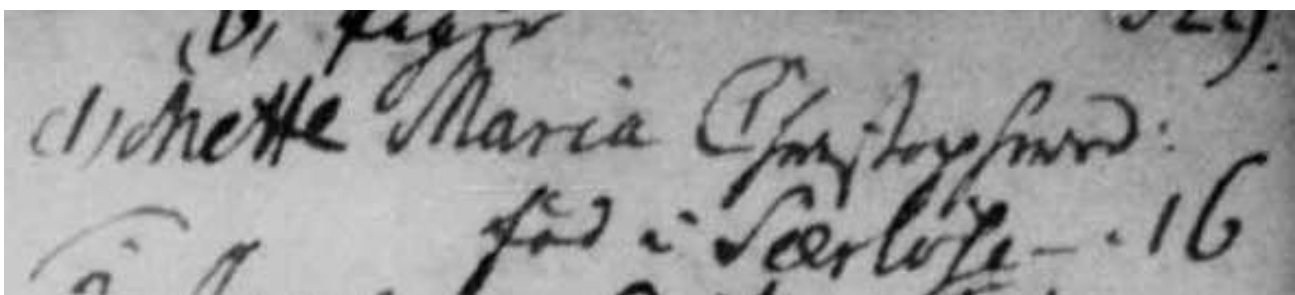 1) Mette Maria Christophersd:
fød i Særløse — . 16